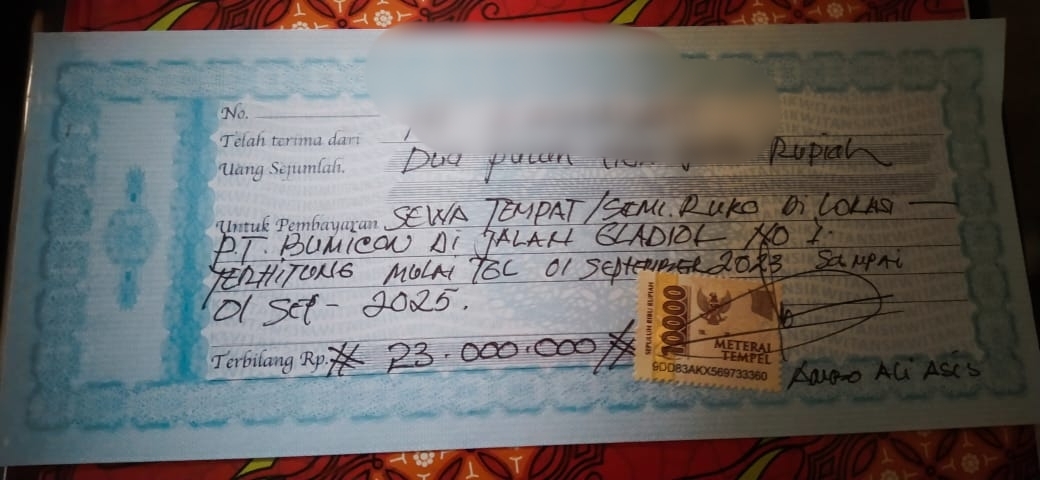 No.
Telah terima dari
Uang Sejumlah. Dua puluh Rupiah
Untuk Pembayaran SEWA TEMPAT/SEMI.RUKO Di LOKASI
P.T. BUMICON Di JALAN GLADIOL NO 1.
TERHITUNG MULAI TGL 01 SEPTEMBER 2023 SAMPAI
01 SEP - 2025.
Terbilang Rp. # 23.000.000 #
SEPULUH RIBU RUPIAH
10000
METERAI
TEMPEL
9DD83AKX569733360
ALI ASIS